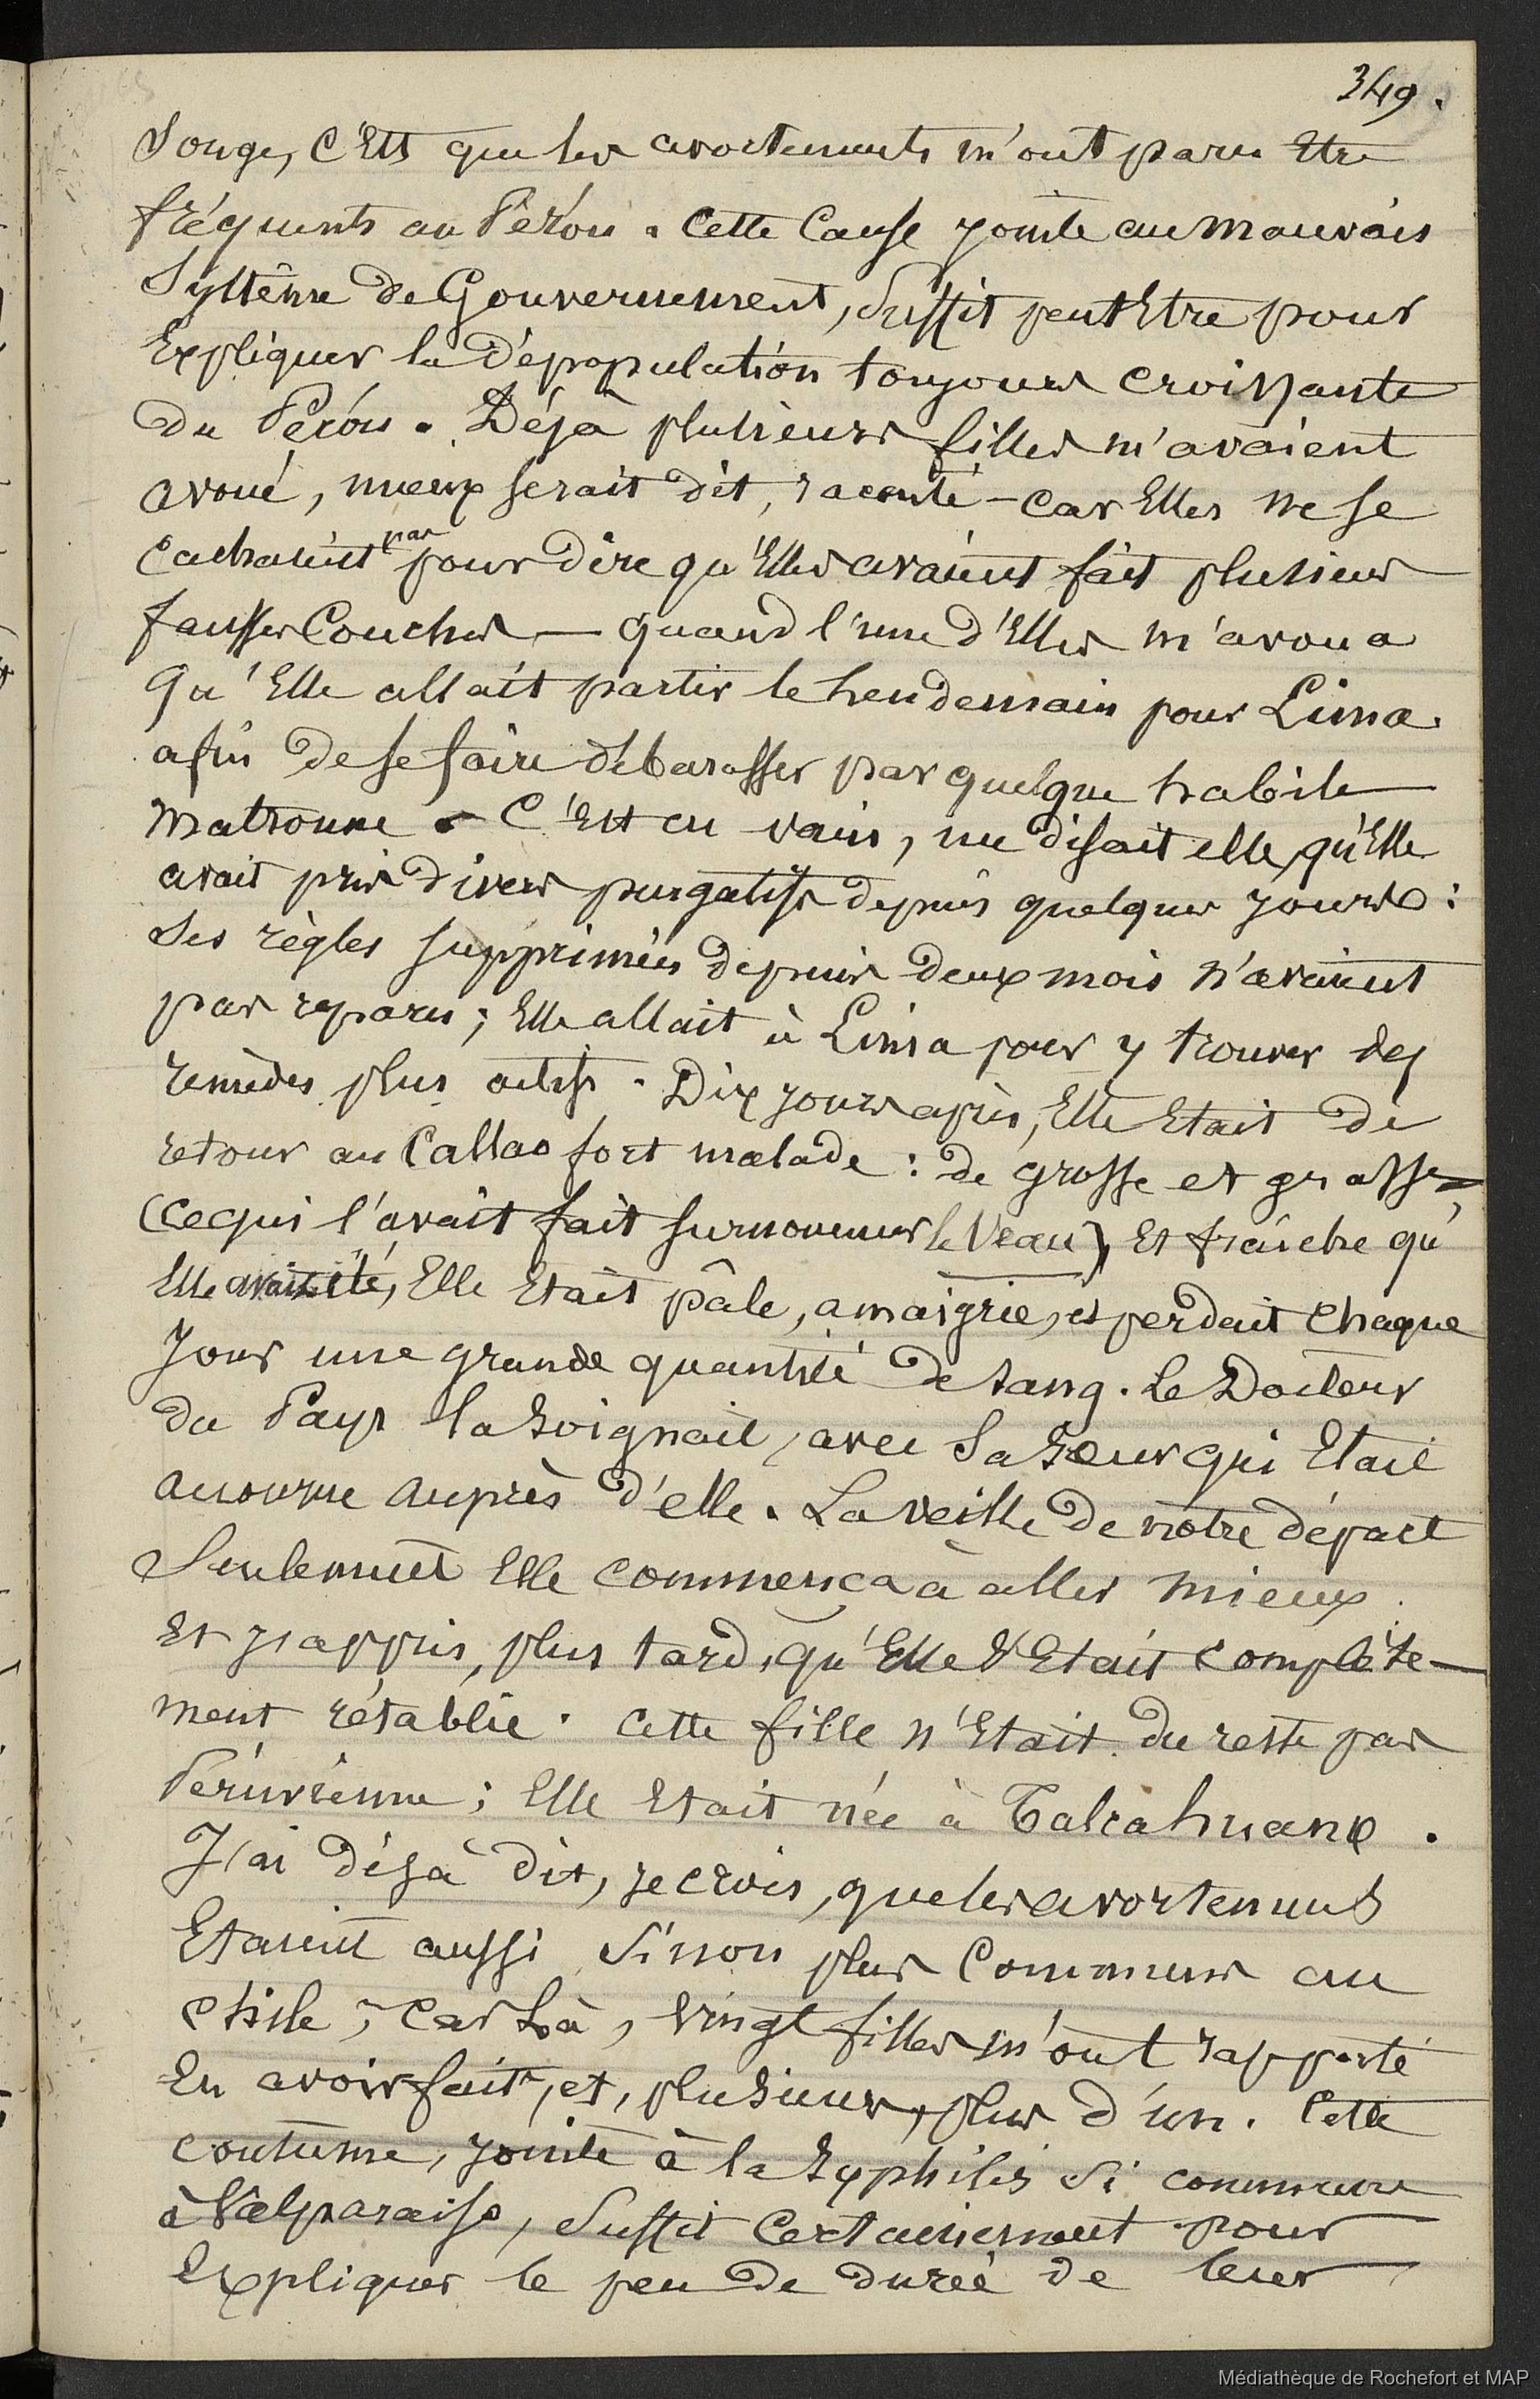 349.
Songe, C'Est que les avortements m'ont paru Etre
fréquents au Pérou. Cette Cause jointe au Mauvais
Système de Gouvernement, Suffit peut Etre pour
Expliquer la Dépopulation toujours croissante
Du Pérou. Déjà plusieurs filles m'avaient
avoué, mieux serait dit, raconté - car Elles ne se
Cachaient pas pour dire qu'Elles avaient fait plusieurs
fausses Couches — quand l'une d'Elles m'avoua
qu'Elle allait partir le lendemain pour Lima
afin de se faire débarasser par quelque habile
Matronne. C'Est en vain, me disait elle, qu'Elle
avait pris divers purgatifs depuis quelques jours :
Ses règles supprimées depuis deux mois n'avaient
pas reparu ; Elle allait à Lima pour y trouver des
remèdes plus actifs. Dix jours après, Elle Etait de
retour au Callao fort malade : de grosse et grasse
(ce qui l'avait fait surnommer le Veau), Et fraîche qu'
Elle avait été, Elle Etait pâle, amaigrie, et perdait chaque
Jour une grande quantité de sang. Le Docteur
du Pays la soignait, avec Sa sœur qui Etait
accourue auprès d'elle. La veille de notre départ
Seulement Elle commença à aller mieux
Et j'appris, plus tard, qu'Elle S'Etait complète-
ment rétablie. Cette fille n'Etait du reste pas
Péruvienne ; Elle Etait née à Talcahuano.
J'ai déjà dit, je crois, que les avortements
Etaient aussi Sinon plus Communs au
Chili ; car Là, vingt filles m'ont rapporté
En avoir fait, et, plusieurs, plus d'un. Cette
coutume, jointe à la Syphilis Si commune
à Valparaiso, Suffit Certainement pour
Expliquer le peu de durée de leur